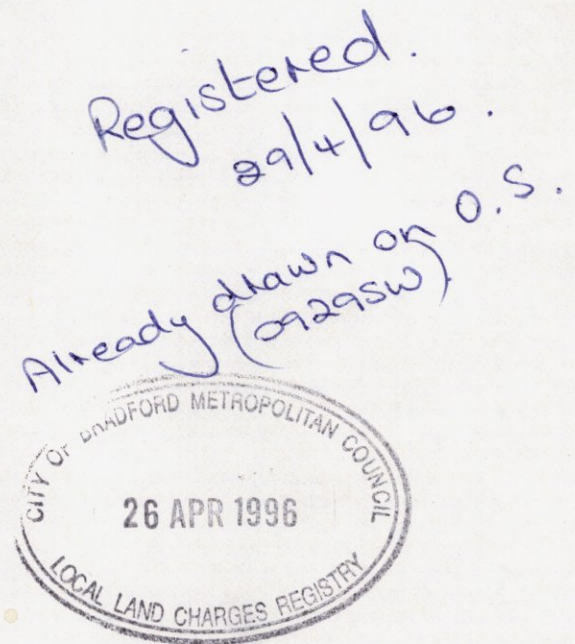 Registered.
29/4/96.
Already drawn on O.S.
(0929SW).
CITY OF BRADFORD METROPOLITAN COUNCIL
26 APR 1996
LOCAL LAND CHARGES REGISTRY